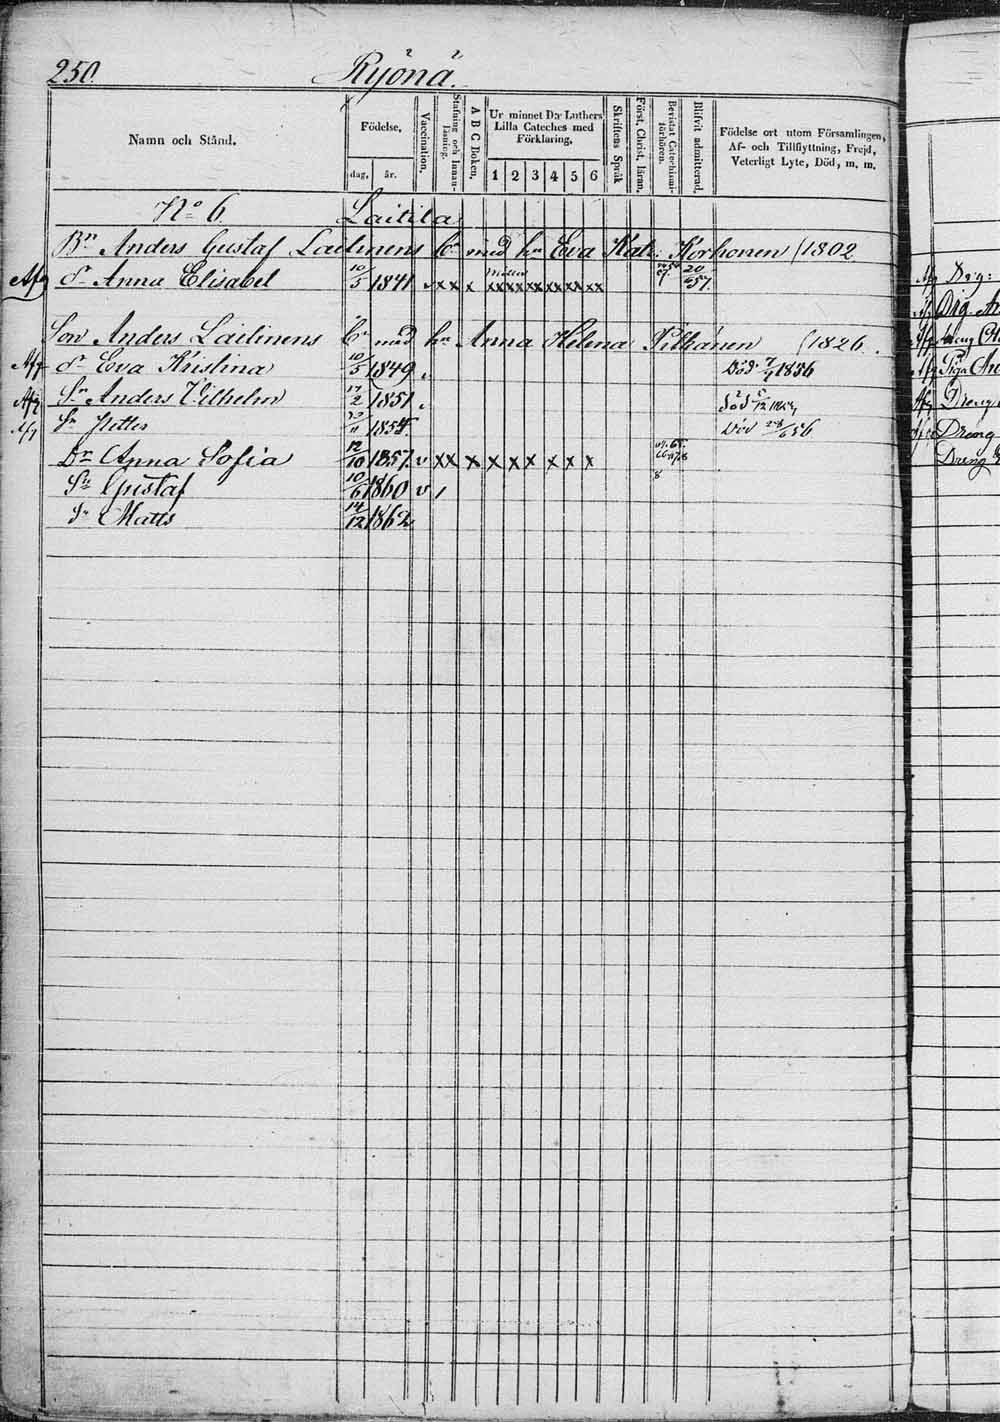 250. Ryönä.
Namn och Stånd.
Födelse,
dag, år.
Vaccination.
Stafning och Innanläsning.
A B C Boken.
Ur minnet D:r Luthers Lilla Cateches med Förklaring,
1 2 3 4 5 6
Skriftens Språk
Först. Christ. läran.
Bevistat Catechismiförhören.
Blifvit admitterad.
Födelse ort utom Församlingen, Af- och Tillflyttning, Frejd, Veterligt Lyte, Död, m. m.
No 6. Laitila
Bn Anders Gustaf Laitinens b. med hu Eva Kat: Korhonen (1802
Afg dr Anna Elisabet 10/5 1841 v x x x xx xx xx xx xx xx 20/6 57.
Son Anders Laitinens b. med hu Anna Helena Pitkänen (1826.
Afg dr Eva Kristina 10/5 1849 Död 7/7 1856
Afg Sn Anders Vilhelm 17/2 1851
Afg Sn Petter 1854 Död 28/6 56
Dr Anna Sofia 12/10 1857. v x x x x x x x x x
Sn Gustaf 10/6 1860 v /
Sn Matts 14/12 1862